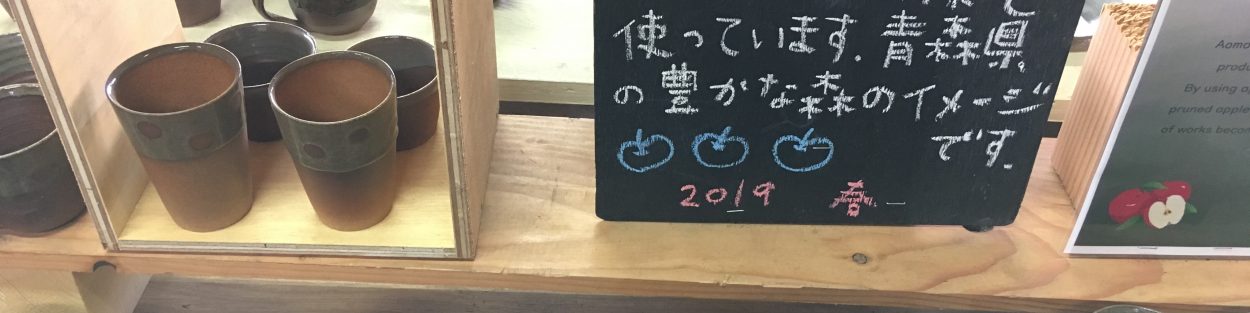 使っています. 青森県
の豊かな森のイメージ
です.
2019 春.
Aomo
produ
By using ap
pruned apple
of works becom